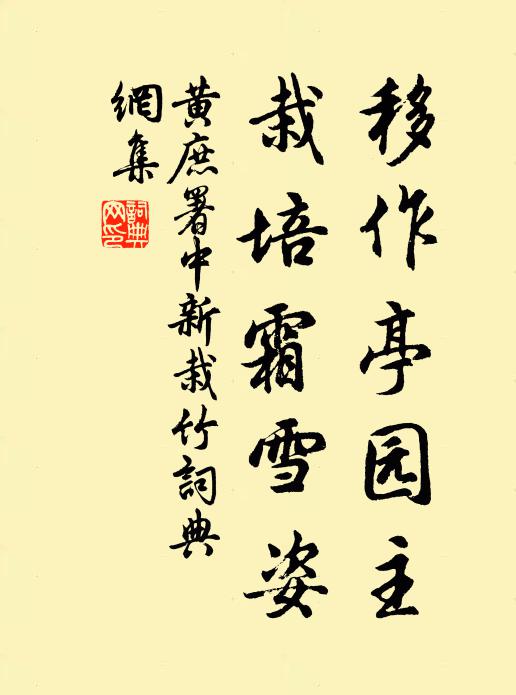 移作亭园主
栽培霜雪姿
黄庶署中新栽竹詞典
網集
詞典網印